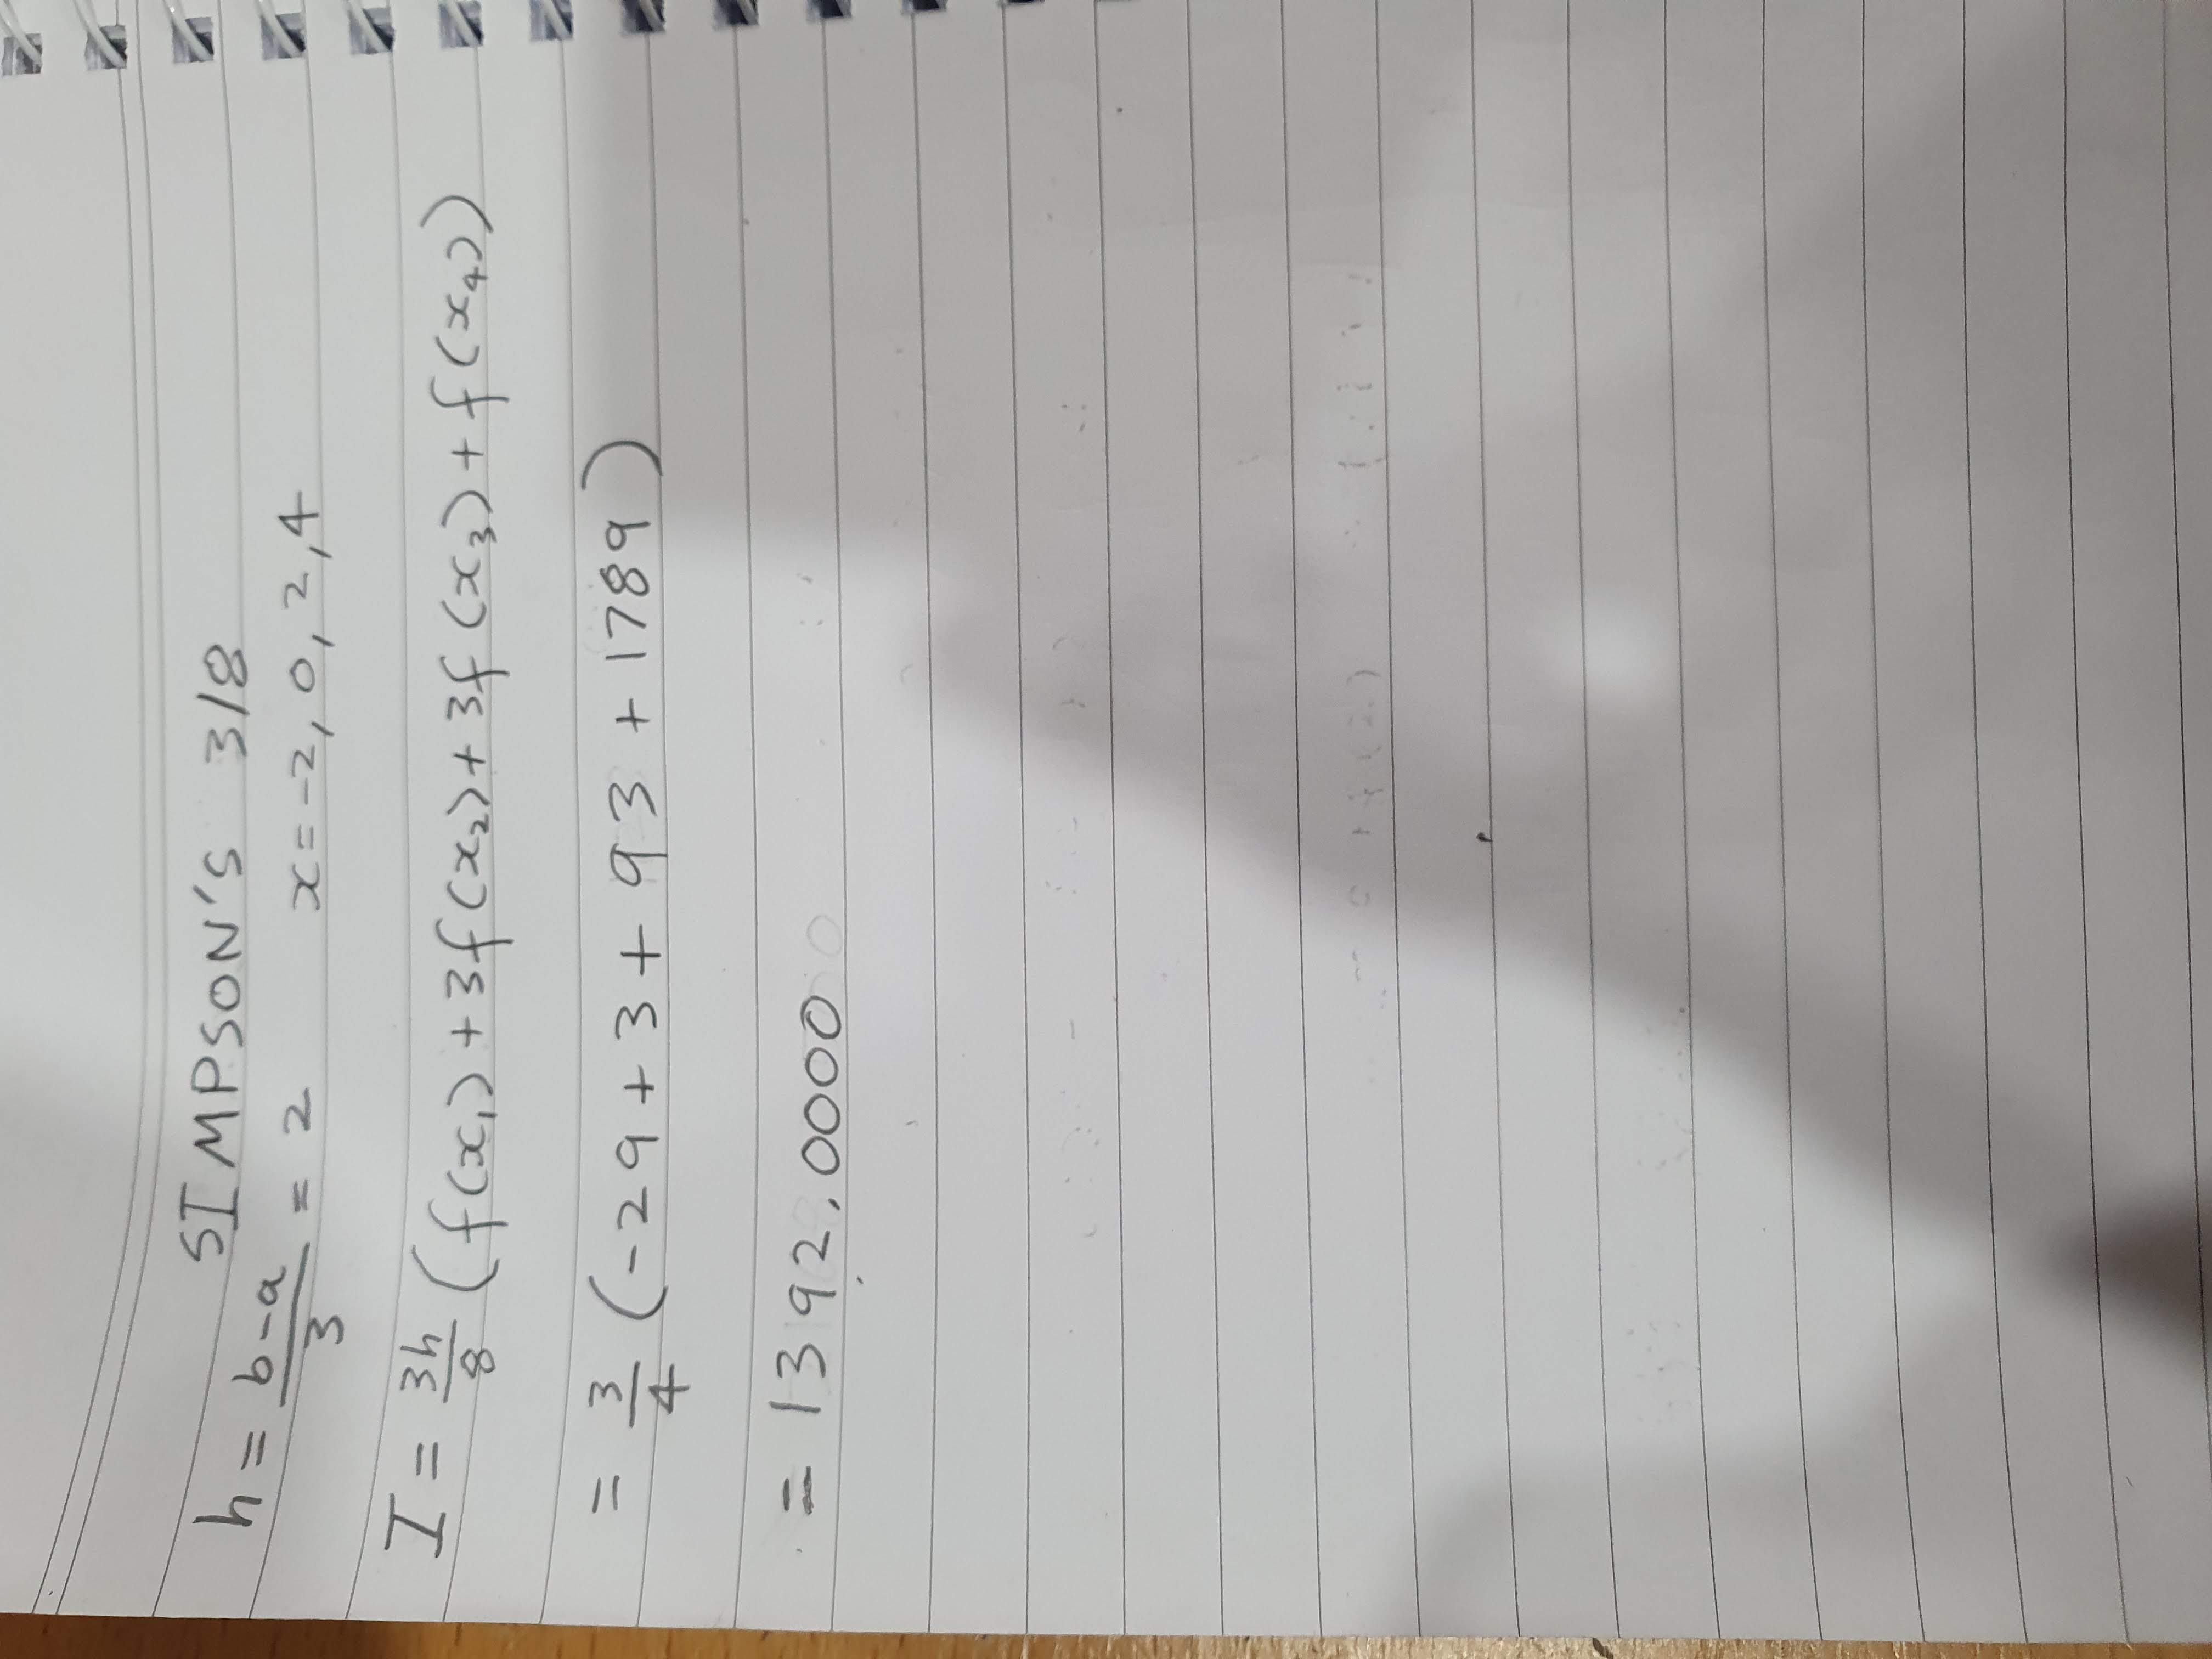 SIMPSON'S 3/8
h = b-a/3 = 2 x = -2, 0, 2, 4
I = 3h/8 (f(x₁) + 3f(x₂) + 3f(x₃) + f(x₄))
= 3/4 (-29 + 3 + 93 + 1789)
= 1392.0000